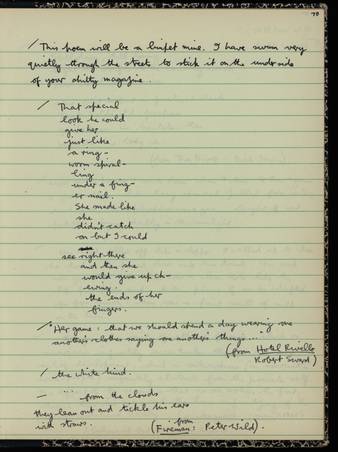 70
/ This poem will be a limpet mine. I have swum very
quietly through the streets to stick it on the underside
of your shitty magazine.
/ That special
look he could
give her
just like
a ring-
worm spiral-
ling
under a fing-
er nail.
She made like
she
didn't catch
on but I could
see right there
and then she
would give up ch-
ewing
the ends of her
fingers.
/ "Her game: that we should spend a day wearing one
another's clothes saying one another's things...
(from Hotel
Robert)
/ the white hind.
— "... from the clouds
they lean out and tickle his ears
with straws.
(from
Fireman: Peter Wild).